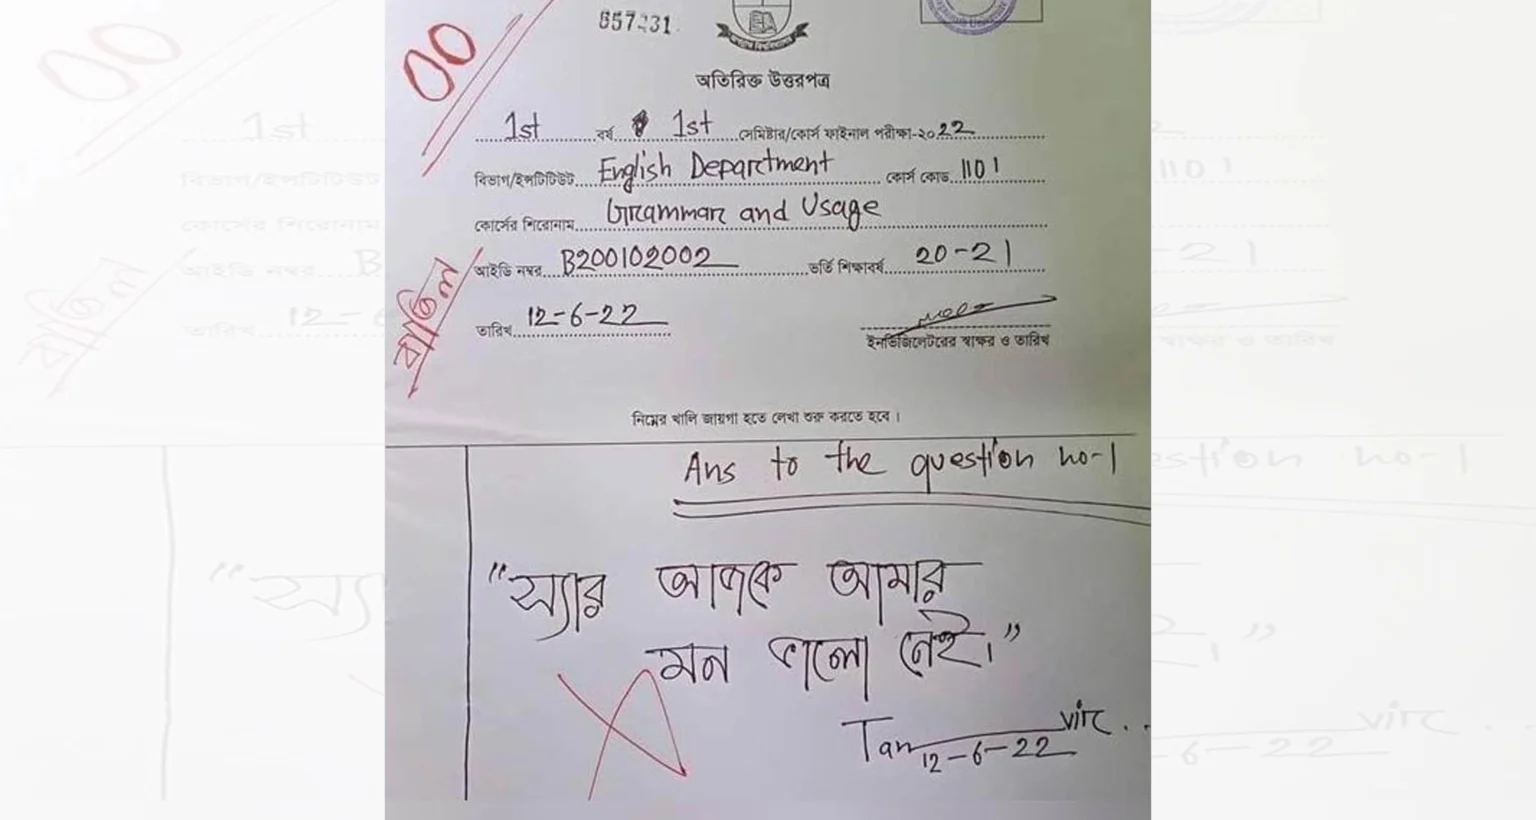 00
657231
অতিরিক্ত উত্তরপত্র
1st বর্ষ 1st সেমিষ্টার/কোর্স ফাইনাল পরীক্ষা-২০22
বিভাগ/ইন্সটিটিউট English Department কোর্স কোড 1101
কোর্সের শিরোনাম Grammar and Usage
আইডি নম্বর B200102002 ভর্তি শিক্ষাবর্ষ 20-21
বাতিল
তারিখ 12-6-22
ইনভিজিলেটরের স্বাক্ষর ও তারিখ
নিম্নের খালি জায়গা হতে লেখা শুরু করতে হবে।
Ans to the question no-1
"স্যার আজকে আমার
মন ভালো নেই।"
Tanvir..
12-6-22